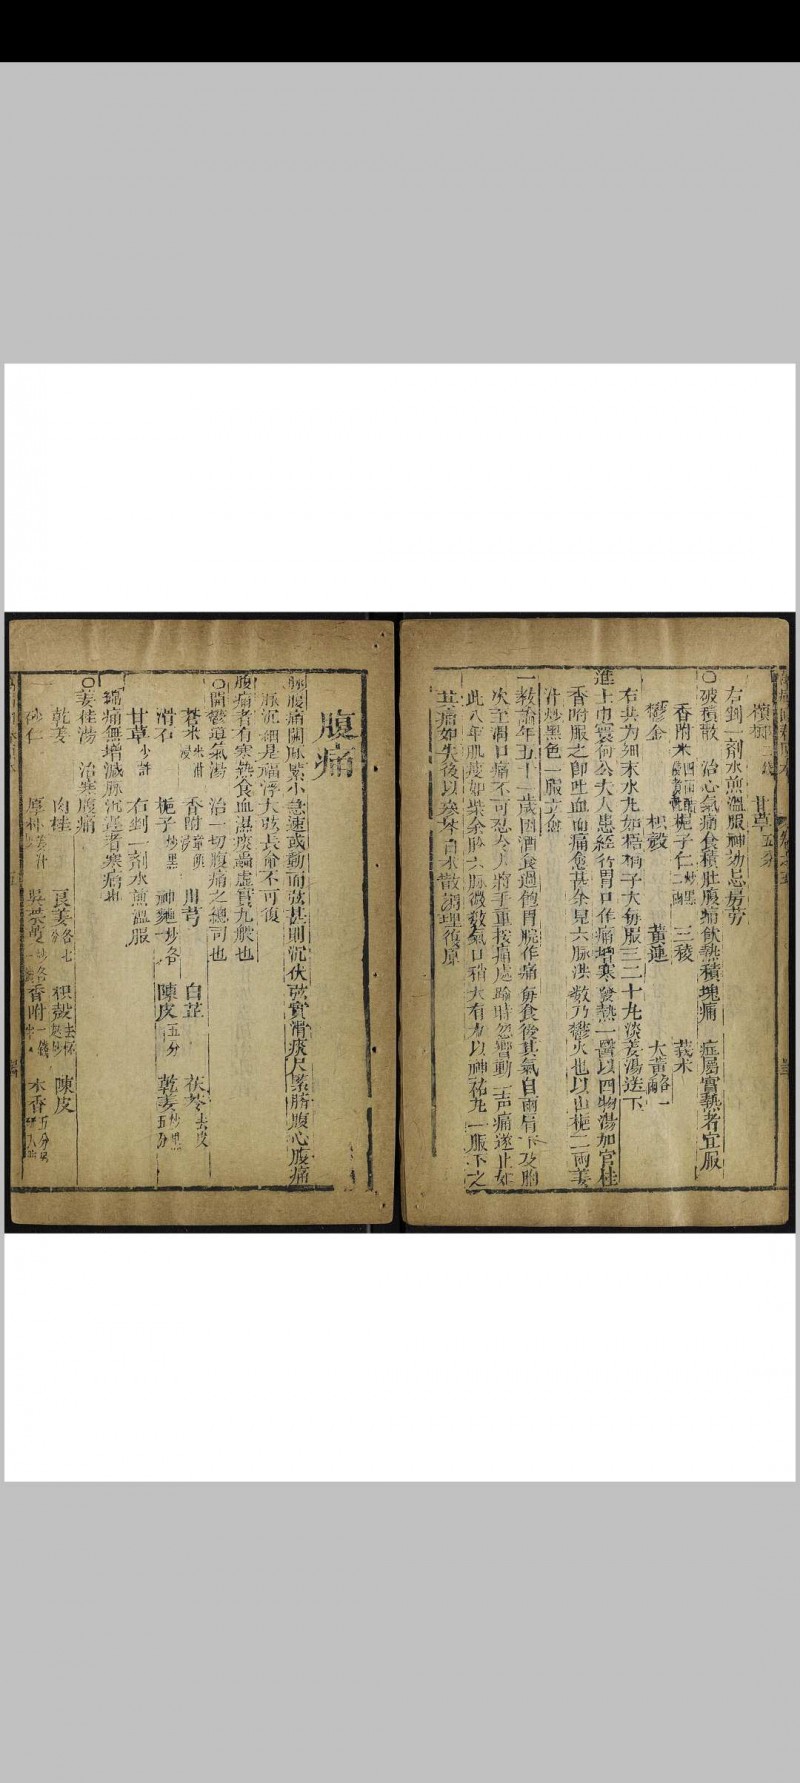 檳榔 甘草五分
右剉一劑水煎溫服神効忌房勞
○破積散 治心氣痛食積肚腹痛飲熱積塊痛 症屬實熱者宜服
香附米四兩 梔子仁炒黑二兩 三稜 莪朮
鬱金 枳殼 黃連 大黃酪一
右共为細末水丸如梧桐子大每服三二十丸淡姜湯送下
進士巾寰何公夫人患經行胃口作痛增寒發熱一醫以四物湯加官桂
香附服之即吐血而痛愈甚余見六脉洪数乃鬱火也以山梔二兩姜
汁炒黑色一服立愈
一教諭年五十一歲因酒食過飽胃脘作痛每食後其氣自兩肩下及胸
次至胃口痛不可忍令人將手重按痛處踰時忽響動一声痛遂止如
此八年肌瘦如柴余胗六脉微数氣口稍大有力以神祐丸一服下之
其痛如失後以参苓白朮散調理復原
腹痛
脉腹痛關脉緊小急速或動而弦甚則沉伏弦實滑痰尺緊臍腹心腹痛
脉沉細是福浮大弦長命不可復
腹痛者有寒熱食血濕痰蟲虛實九般也
○開鬱道氣湯 治一切腹痛之總司也
蒼朮米泔浸 香附童便 川芎 白芷 茯苓去皮
滑石 梔子炒黑 神麯炒各 陳皮五分 乾姜炒黑五分
甘草少許 右剉一劑水煎溫服
綿痛無增減脉沉遲者寒痛也
○姜桂湯 治寒腹痛
乾姜 肉桂 良姜各七分 枳殼去穰麩炒 陳皮
砂仁 厚朴姜汁炒 吳茱萸炒各 香附一錢 木香五分另